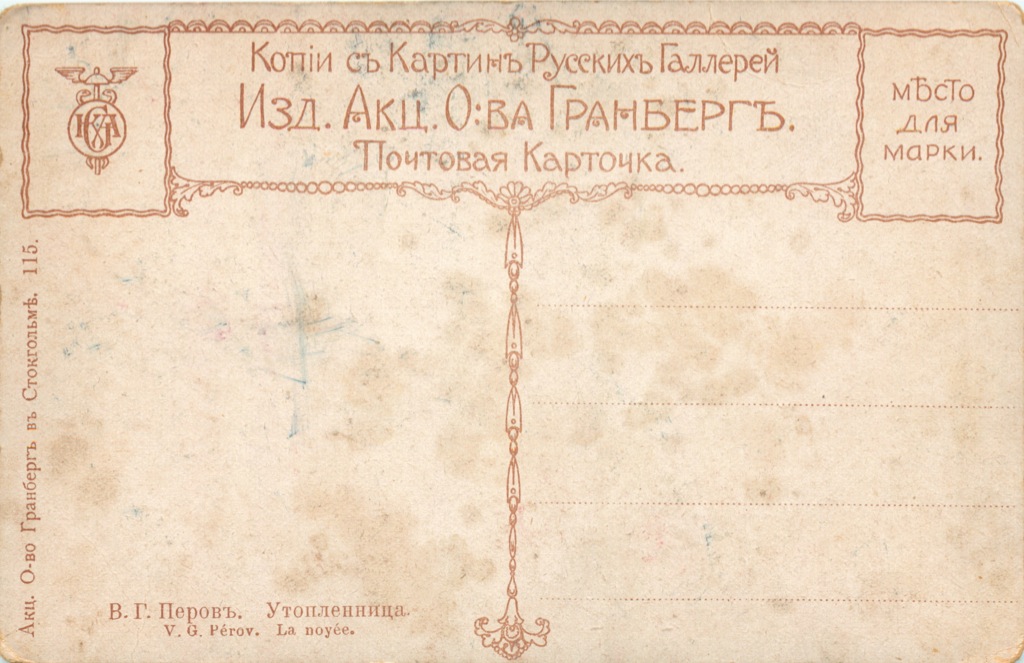 Копіи съ Картинъ Русскихъ Галлерей
Изд. Акц. О:ва Гранбергъ.
Почтовая Карточка.
мѣсто
для
марки.
Акц. О-во Гранбергъ въ Стокгольмѣ. 115.
В. Г. Перовъ. Утопленница.
V. G. Pérov. La noyée.